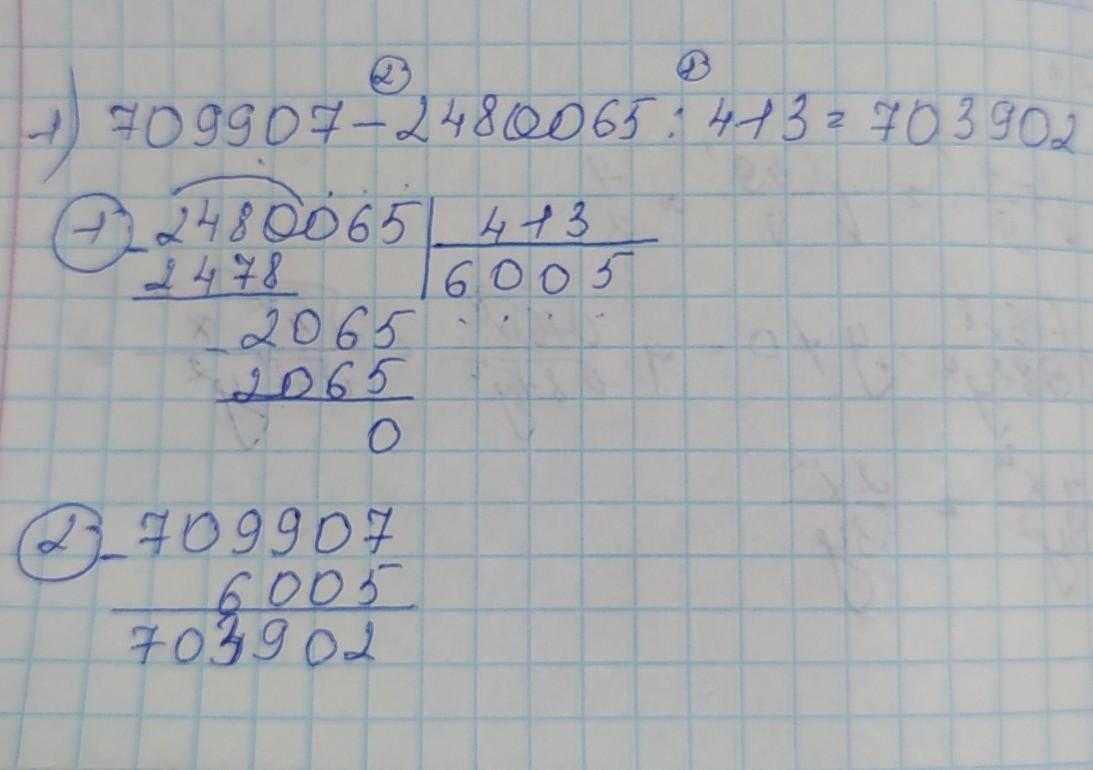 ② ①
1) 709907-2480065:413=703902
① -2480065|413
2478 |6005
-2065
2065
0
② -709907
6005
703902